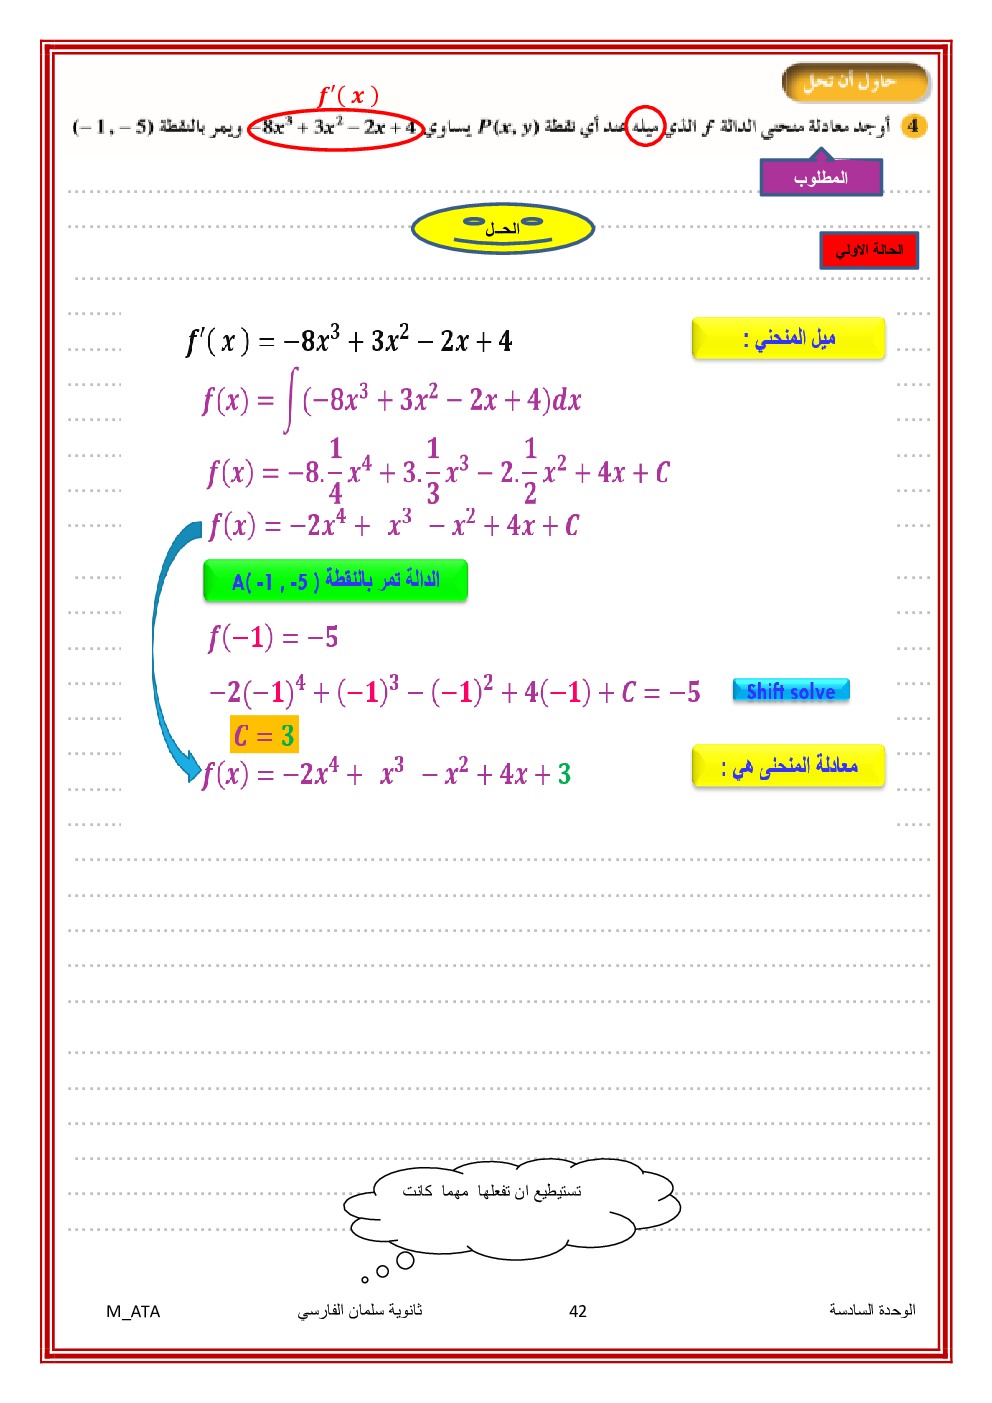 حاول أن تحل
f′( x )
4 أوجد معادلة منحنى الدالة f الذي ميله عند أي نقطة P(x, y) يساوي −8x³ + 3x² − 2x + 4 ويمر بالنقطة (−1, −5)
المطلوب
الحــل
الحالة الاولي
ميل المنحني : f′( x ) = −8x³ + 3x² − 2x + 4
f(x) = ∫(−8x³ + 3x² − 2x + 4)dx
f(x) = −8.1/4 x⁴ + 3.1/3 x³ − 2.1/2 x² + 4x + C
f(x) = −2x⁴ + x³ − x² + 4x + C
الدالة تمر بالنقطة A( -1 , -5 )
f(−1) = −5
−2(−1)⁴ + (−1)³ − (−1)² + 4(−1) + C = −5 Shift solve
C = 3
معادلة المنحنى هي : f(x) = −2x⁴ + x³ − x² + 4x + 3
تستيطيع ان تفعلها مهما كانت
الوحدة السادسة 42 ثانوية سلمان الفارسي M_ATA